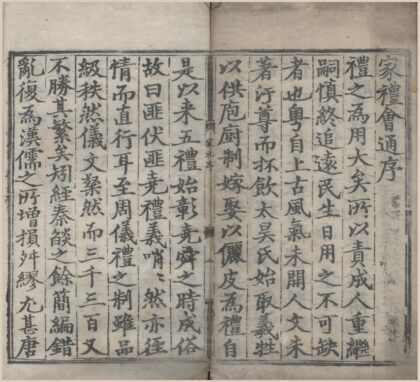 家禮會通序
禮之為用大矣所以責成人重繼
嗣慎終追遠民生日用之不可缺
者也粵自上古風氣未開人文未
著汙尊而抔飲太昊氏始取羲牲
以供庖厨制嫁娶以儷皮為禮自
是以来五禮始彰堯舜之時成俗
故曰匪伏匪堯禮義哨〻然亦徑
情而直行耳至周儀禮之制雖品
級秩然儀文粲然而三千三百又
不勝其繁矣矧經秦燄之餘簡編錯
亂復為漢儒之所增損舛繆尤甚唐